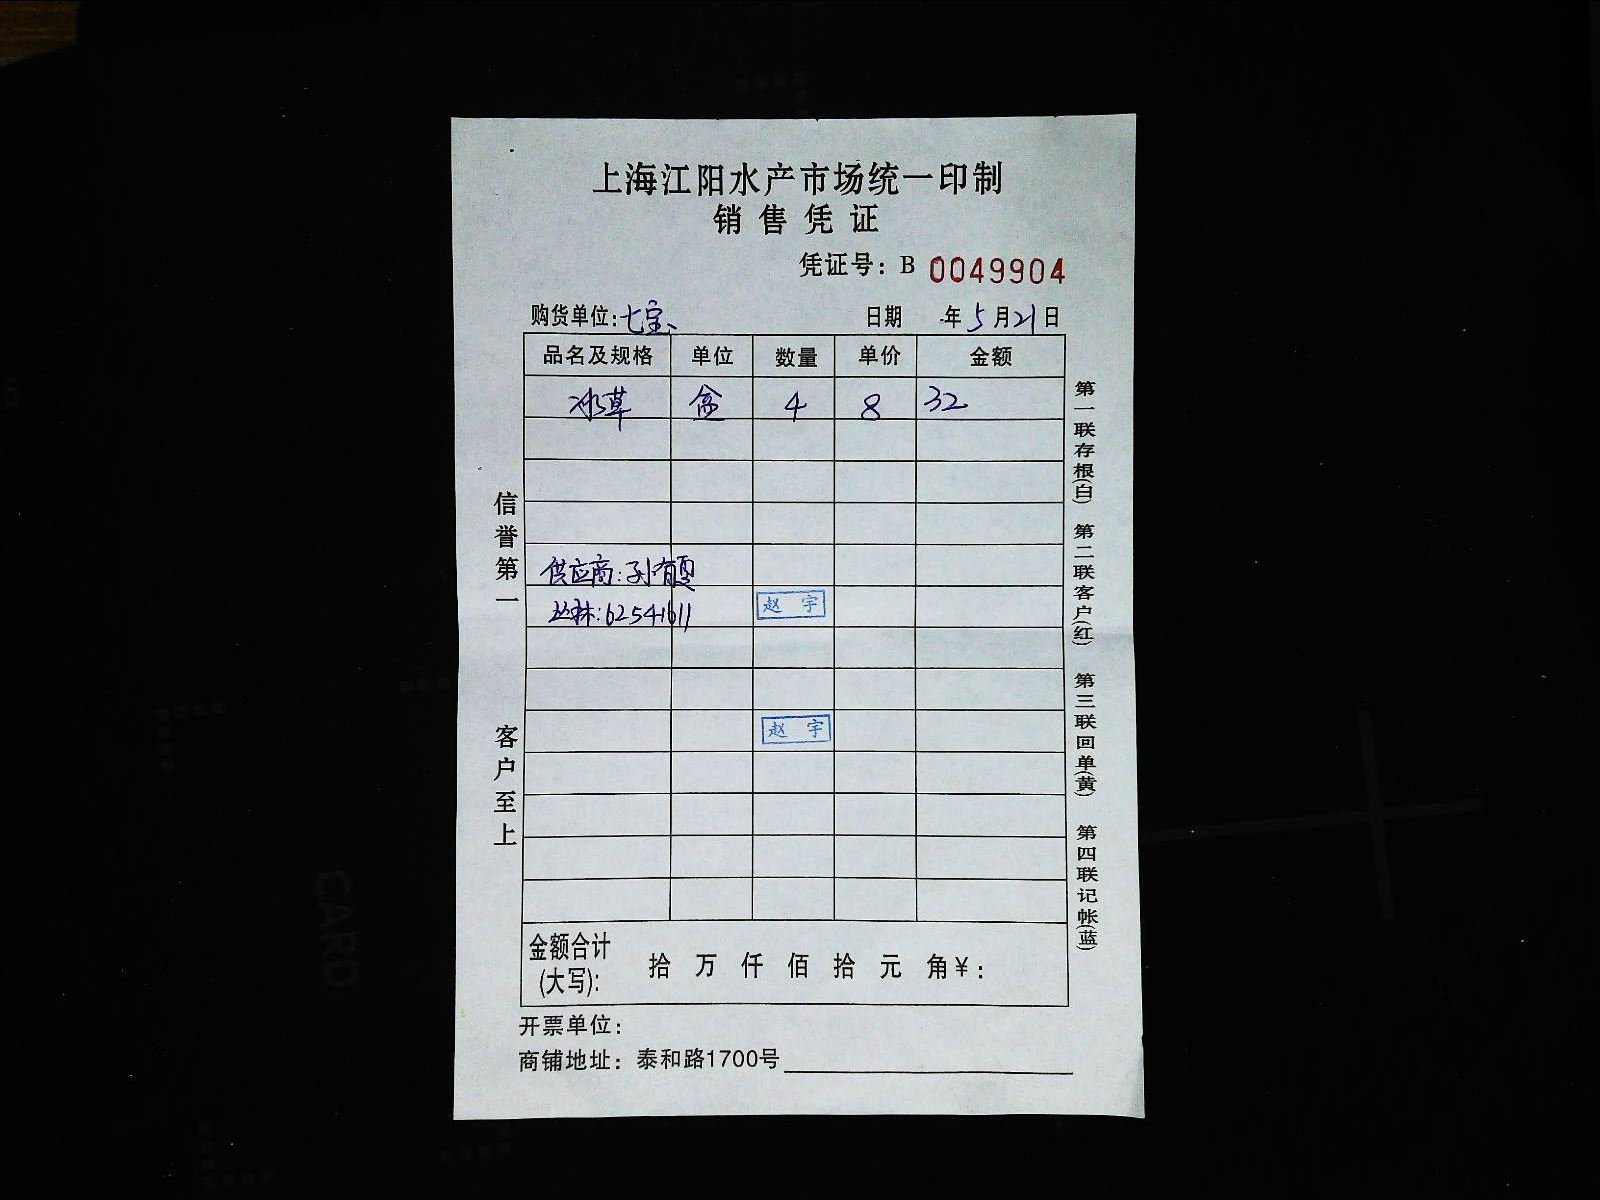 上海江阳水产市场统一印制
销售凭证
凭证号：B 0049904
购货单位：七宝 日期 年5月21日
品名及规格 单位 数量 单价 金额
冰草 盒 4 8 32
供应商：
62541611
赵 宇
赵 宇
金额合计(大写): 拾 万 仟 佰 拾 元 角 ¥：
开票单位：
商铺地址：泰和路1700号
信誉第一 客户至上
第一联存根(白) 第二联客户(红) 第三联回单(黄) 第四联记帐(蓝)
CARD